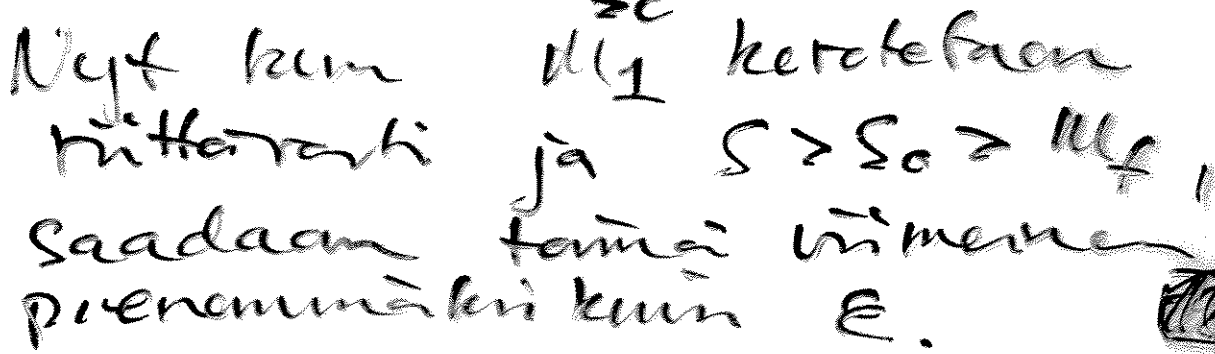 Nyt kun M₁ kerrotetaan
riittävasti ja S > S₀ > M_f,
saadaan tämä viimeinen
pienemmäksi kuin ε.